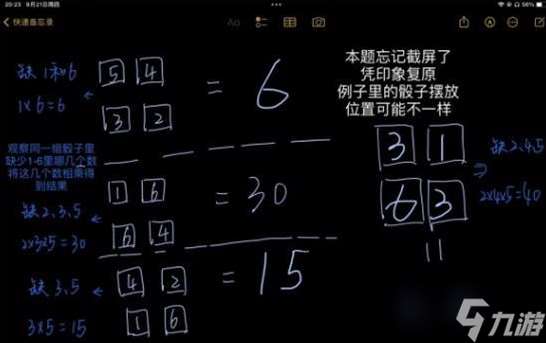 20:23 9月21日周四
98%
快速备忘录
Aa
本题忘记截屏了
凭印象复原
例子里的骰子摆放
位置可能不一样
缺1和6
1×6=6
5 4
3 2
= 6
观察同一组骰子里
缺少1-6里哪几个数
将这几个数相乘得
到结果
缺2.3.5
2×3×5=30
1 6
6 4
= 30
缺3.5
3×5=15
4 2
1 6
= 15
3 1
6 3
缺2.4.5
2×4×5=40
九游